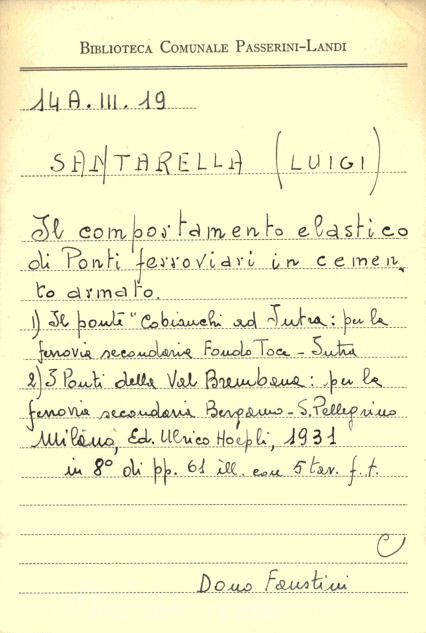 BIBLIOTECA COMUNALE PASSERINI-LANDI
14A.III.19
SANTARELLA (LUIGI)
Il comportamento elastico
di Ponti ferroviari in cemen,
to armato.
1) Il ponte "Cobianchi ad Intra: per la
ferrovia secondaria Fondo Toce - Intra
2) 3 Ponti della Val Brembana: per la
ferrovia secondaria Bergamo - S. Pellegrino
Milano, Ed. Ulrico Hoepli, 1931
in 8° di pp. 61 ill. con 5 tav. f.t.
C
Dono Faustini